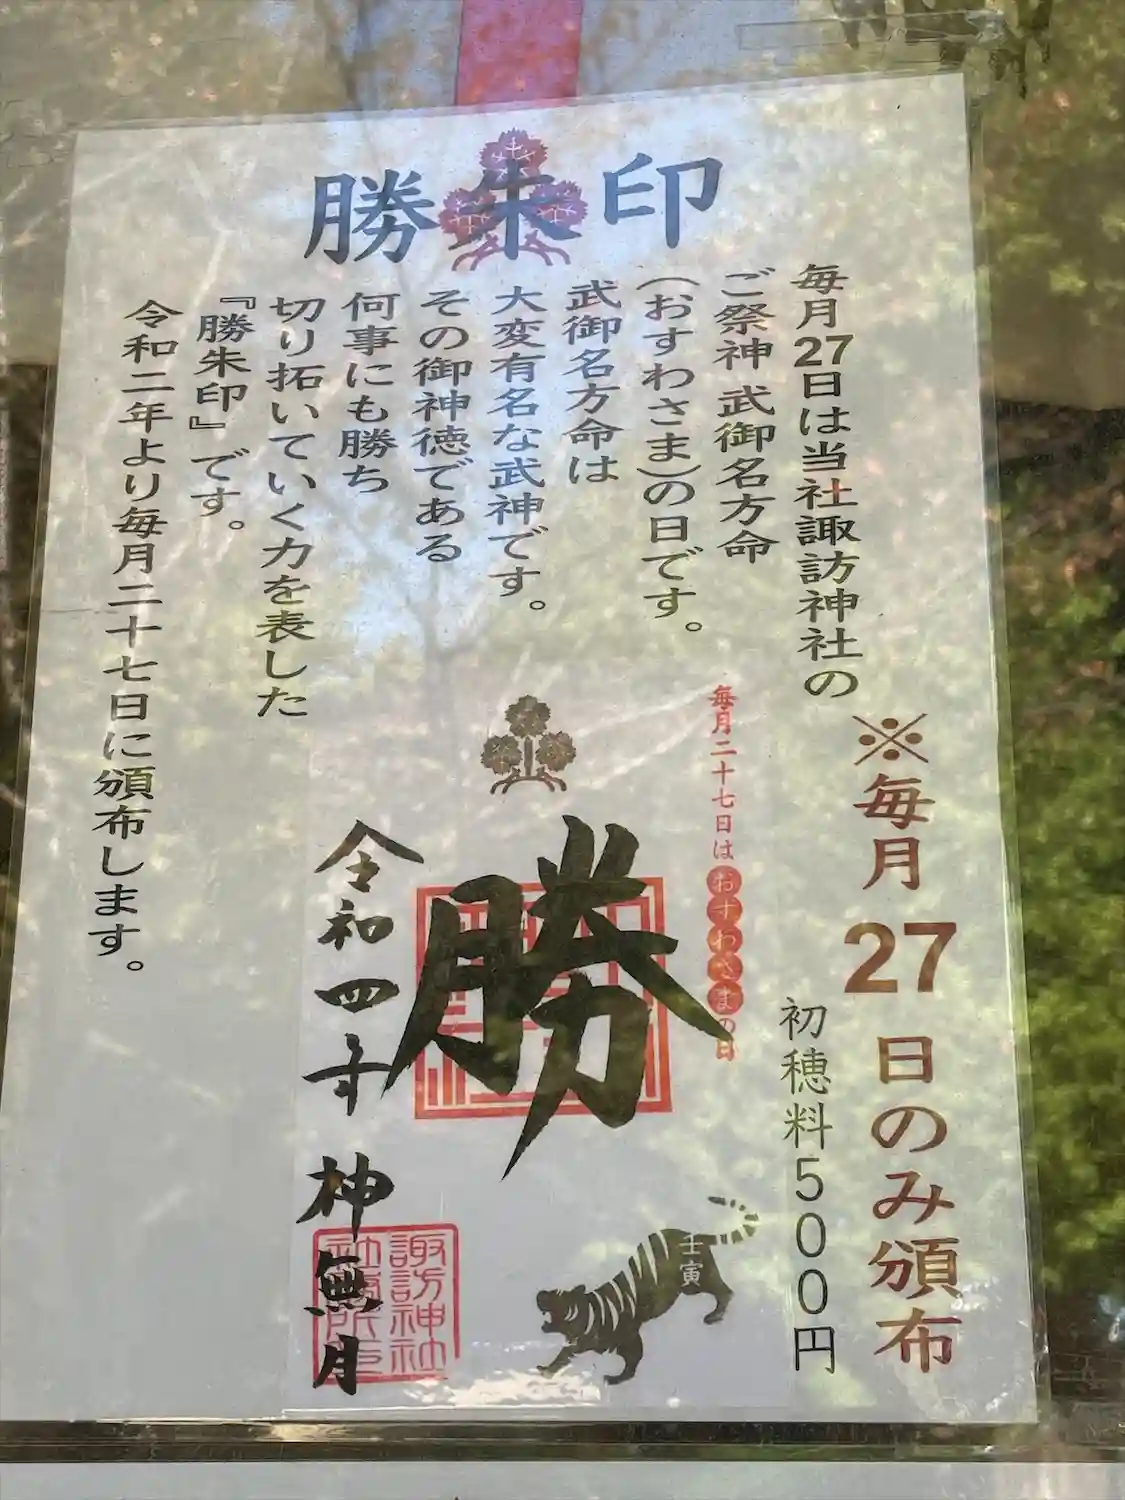 勝朱印
毎月27日は当社諏訪神社の
ご祭神 武御名方命
（おすわさま）の日です。
武御名方命は
大変有名な武神です。
その御神徳である
何事にも勝ち
切り拓いていく力を表した
『勝朱印』です。
令和二年より毎月二十七日に頒布します。
※毎月27日のみ頒布
初穂料500円
毎月二十七日はおすわさまの日
勝
令和四年 神無月
諏訪神社
壬寅